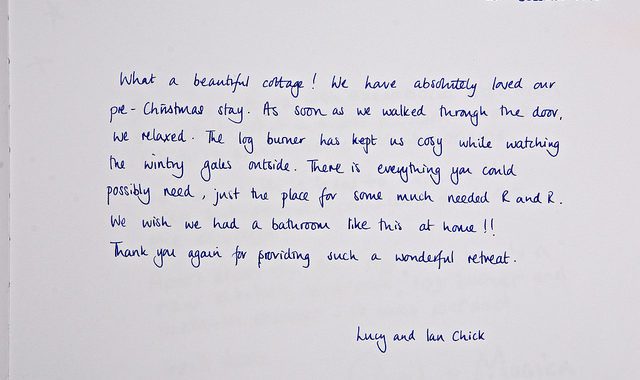 What a beautiful cottage! We have absolutely loved our
pre-Christmas stay. As soon as we walked through the door,
we relaxed. The log burner has kept us cosy while watching
the wintry gales outside. There is everything you could
possibly need, just the place for some much needed R and R.
We wish we had a bathroom like this at home!!
Thank you again for providing such a wonderful retreat.
Lucy and Ian Chick